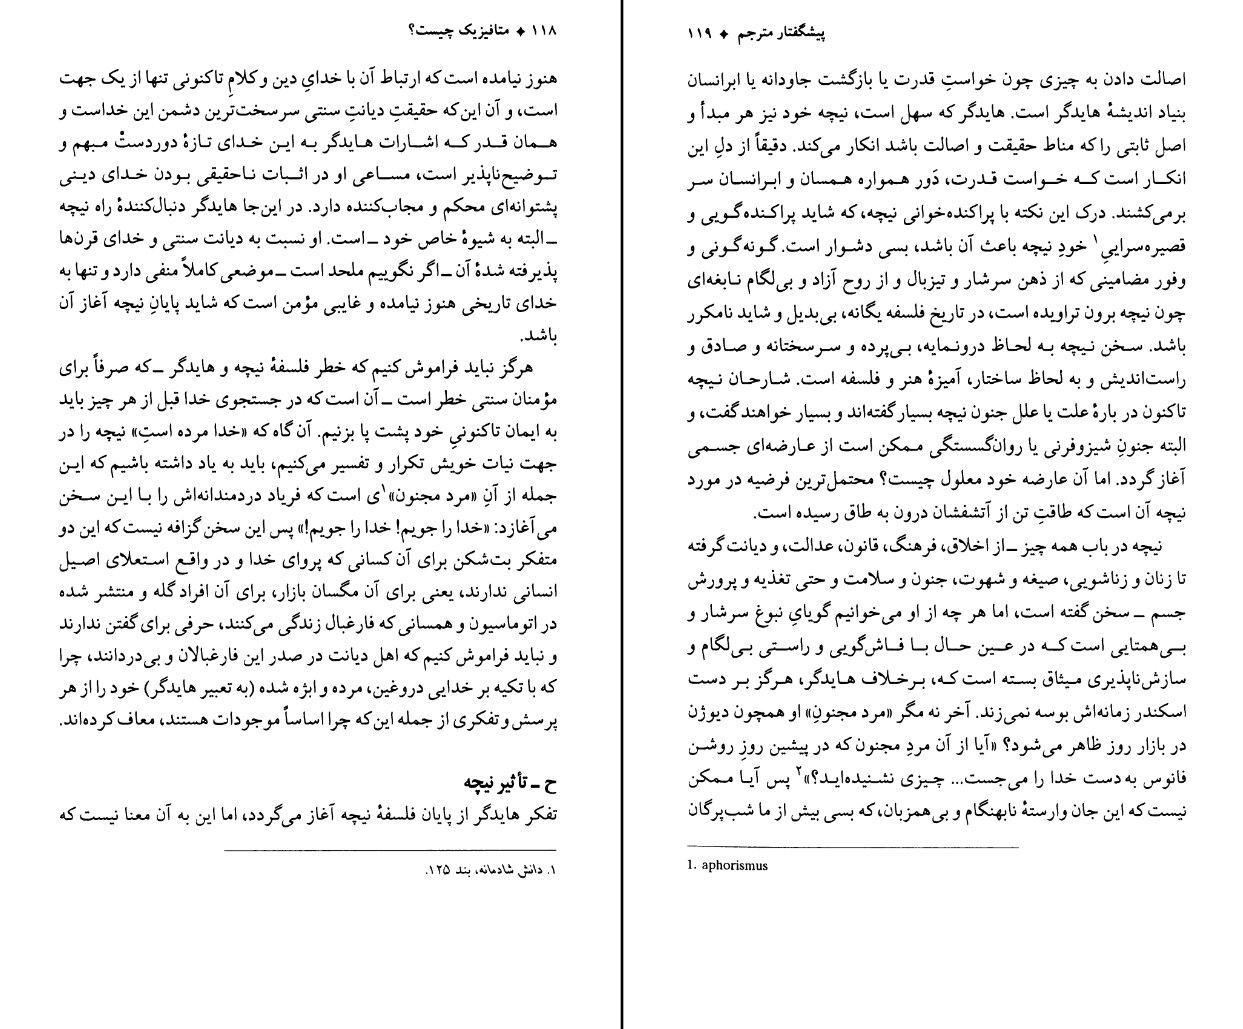 ۱۱۸ ♦ متافیزیک چیست؟
هنوز نیامده است که ارتباط آن با خدایِ دین و کلامِ تاکنونی تنها از یک جهت
است، و آن این‌که حقیقتِ دیانتِ سنتی سرسخت‌ترین دشمن این خداست و
همان قدر که اشارات هایدگر به این خدای تازهٔ دوردستْ مبهم و
توضیح‌ناپذیر است، مساعی او در اثبات ناحقیقی بودن خدای دینی
پشتوانه‌ای محکم و مجاب‌کننده دارد. در این‌جا هایدگر دنبال‌کنندهٔ راه نیچه
ـ البته به شیوهٔ خاص خود ـ است. او نسبت به دیانت سنتی و خدای قرن‌ها
پذیرفته شدهٔ آن ـ اگر نگوییم ملحد است ـ موضعی کاملاً منفی دارد و تنها به
خدای تاریخی هنوز نیامده و غایبی مؤمن است که شاید پایانِ نیچه آغاز آن
باشد.
هرگز نباید فراموش کنیم که خطر فلسفهٔ نیچه و هایدگر ـ که صرفاً برای
مؤمنان سنتی خطر است ـ آن است که در جستجوی خدا قبل از هر چیز باید
به ایمان تاکنونیِ خود پشت پا بزنیم. آن گاه که «خدا مرده استِ» نیچه را در
جهت نیات خویش تکرار و تفسیر می‌کنیم، باید به یاد داشته باشیم که این
جمله از آنِ «مرد مجنون»۱ی است که فریاد دردمندانه‌اش را با این سخن
می‌آغازد: «خدا را جویم! خدا را جویم!» پس این سخن گزافه نیست که این دو
متفکر بت‌شکن برای آن کسانی که پروای خدا و در واقع استعلای اصیل
انسانی ندارند، یعنی برای آن مگسان بازار، برای آن افراد گله و منتشر شده
در اتوماسیون و همسانی که فارغبال زندگی می‌کنند، حرفی برای گفتن ندارند
و نباید فراموش کنیم که اهل دیانت در صدر این فارغبالان و بی‌دردانند، چرا
که با تکیه بر خدایی دروغین، مرده و ابژه شده (به تعبیر هایدگر) خود را از هر
پرسش و تفکری از جمله این‌که چرا اساساً موجودات هستند، معاف کرده‌اند.
ح ـ تأثیر نیچه
تفکر هایدگر از پایان فلسفهٔ نیچه آغاز می‌گردد، اما این به آن معنا نیست که
۱. دانش شادمانه، بند ۱۲۵.
پیشگفتار مترجم ♦ ۱۱۹
اصالت دادن به چیزی چون خواستِ قدرت یا بازگشت جاودانه یا ابرانسان
بنیاد اندیشهٔ هایدگر است. هایدگر که سهل است، نیچه خود نیز هر مبدأ و
اصل ثابتی را که مناط حقیقت و اصالت باشد انکار می‌کند. دقیقاً از دلِ این
انکار است که خواست قدرت، دَور همواره همسان و ابرانسان سر
برمی‌کشند. درک این نکته با پراکنده‌خوانی نیچه، که شاید پراکنده‌گویی و
قصیره‌سراییِ۱ خودِ نیچه باعث آن باشد، بسی دشوار است. گونه‌گونی و
وفور مضامینی که از ذهن سرشار و تیزبال و از روح آزاد و بی‌لگام نابغه‌ای
چون نیچه برون تراویده است، در تاریخ فلسفه یگانه، بی‌بدیل و شاید نامکرر
باشد. سخن نیچه به لحاظ درونمایه، بی‌پرده و سرسختانه و صادق و
راست‌اندیش و به لحاظ ساختار، آمیزهٔ هنر و فلسفه است. شارحان نیچه
تاکنون در بارهٔ علت یا علل جنون نیچه بسیار گفته‌اند و بسیار خواهند گفت، و
البته جنونِ شیزوفرنی یا روان‌گسستگی ممکن است از عارضه‌ای جسمی
آغاز گردد. اما آن عارضه خود معلول چیست؟ محتمل‌ترین فرضیه در مورد
نیچه آن است که طاقتِ تن از آتشفشان درون به طاق رسیده است.
نیچه در باب همه چیز ـ از اخلاق، فرهنگ، قانون، عدالت، و دیانت گرفته
تا زنان و زناشویی، صیغه و شهوت، جنون و سلامت و حتی تغذیه و پرورش
جسم ـ سخن گفته است، اما هر چه از او می‌خوانیم گویایِ نبوغ سرشار و
بی‌همتایی است که در عین حال با فاش‌گویی و راستی بی‌لگام و
سازش‌ناپذیری میثاق بسته است که، برخلاف هایدگر، هرگز بر دست
اسکندر زمانه‌اش بوسه نمی‌زند. آخر نه مگر «مرد مجنونِ» او همچون دیوژن
در بازار روز ظاهر می‌شود؟ «آیا از آن مردِ مجنون که در پیشین روزِ روشن
فانوس به دست خدا را می‌جست... چیزی نشنیده‌اید؟»۲ پس آیا ممکن
نیست که این جان وارستهٔ نابهنگام و بی‌همزبان، که بسی بیش از ما شب‌پرگان
1. aphorismus